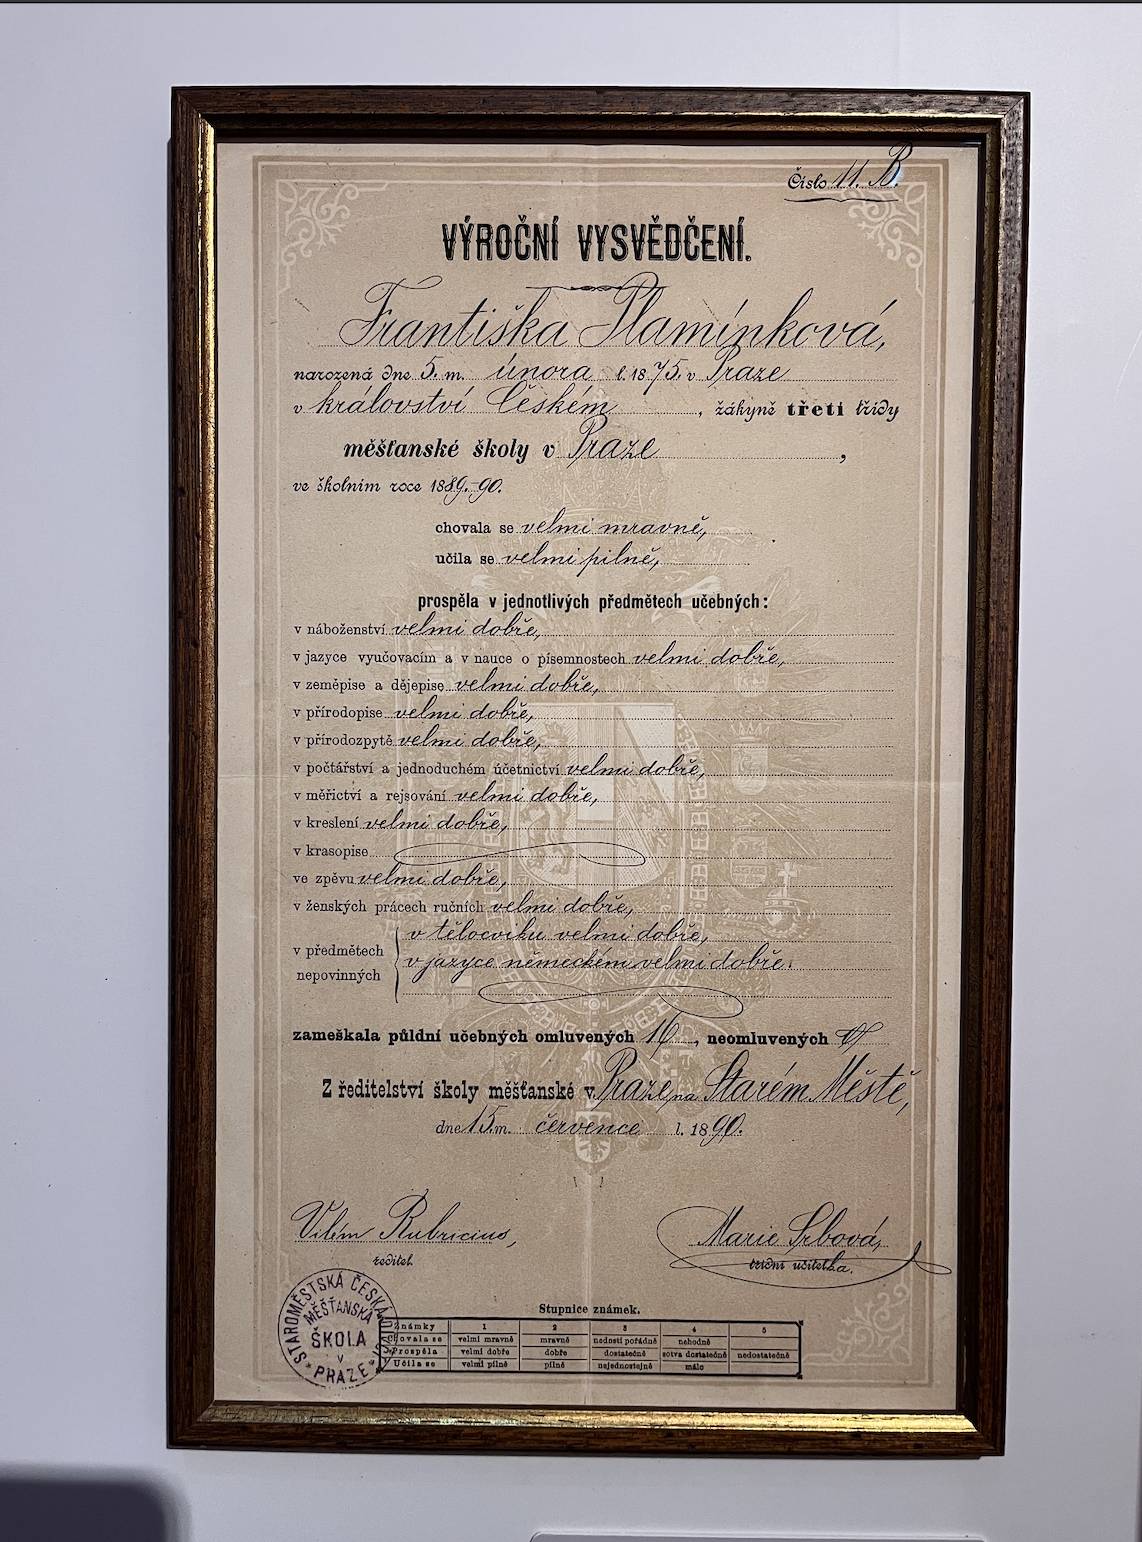 Číslo 11. B.
VÝROČNÍ VYSVĚDČENÍ.
Františka Plamínková,
narozená dne 5. m. února l. 1875. v Praze
v království Českém, žákyně třetí třídy
měšťanské školy v Praze,
ve školním roce 1889.-90.
chovala se velmi mravně,
učila se velmi pilně,
prospěla v jednotlivých předmětech učebných:
v náboženství velmi dobře,
v jazyce vyučovacím a v nauce o písemnostech velmi dobře,
v zeměpise a dějepise velmi dobře,
v přírodopise velmi dobře,
v přírodozpytě velmi dobře,
v počtářství a jednoduchém účetnictví velmi dobře,
v měřictví a rejsování velmi dobře,
v kreslení velmi dobře,
v krasopise
ve zpěvu velmi dobře,
v ženských prácech ručních velmi dobře,
v předmětech nepovinných
v tělocviku velmi dobře,
v jazyce německém velmi dobře.
zameškala půldní učebných omluvených 16, neomluvených
Z ředitelství školy měšťanské v Praze, na Starém Městě,
dne 15. m. července l. 1890.
Vilém Rubricius,
ředitel.
Marie Srbová,
třídní učitelka.
STAROMĚSTSKÁ ČESKÁ DÍVČÍ
MĚŠŤANSKÁ
ŠKOLA
v
PRAZE
Stupnice známek.
Známky 1 2 3 4 5
Chovala se velmi mravně mravně nedosti pořádně nehodně
Prospěla velmi dobře dobře dostatečně sotva dostatečně nedostatečně
Učila se velmi pilně pilně nejednostejně málo